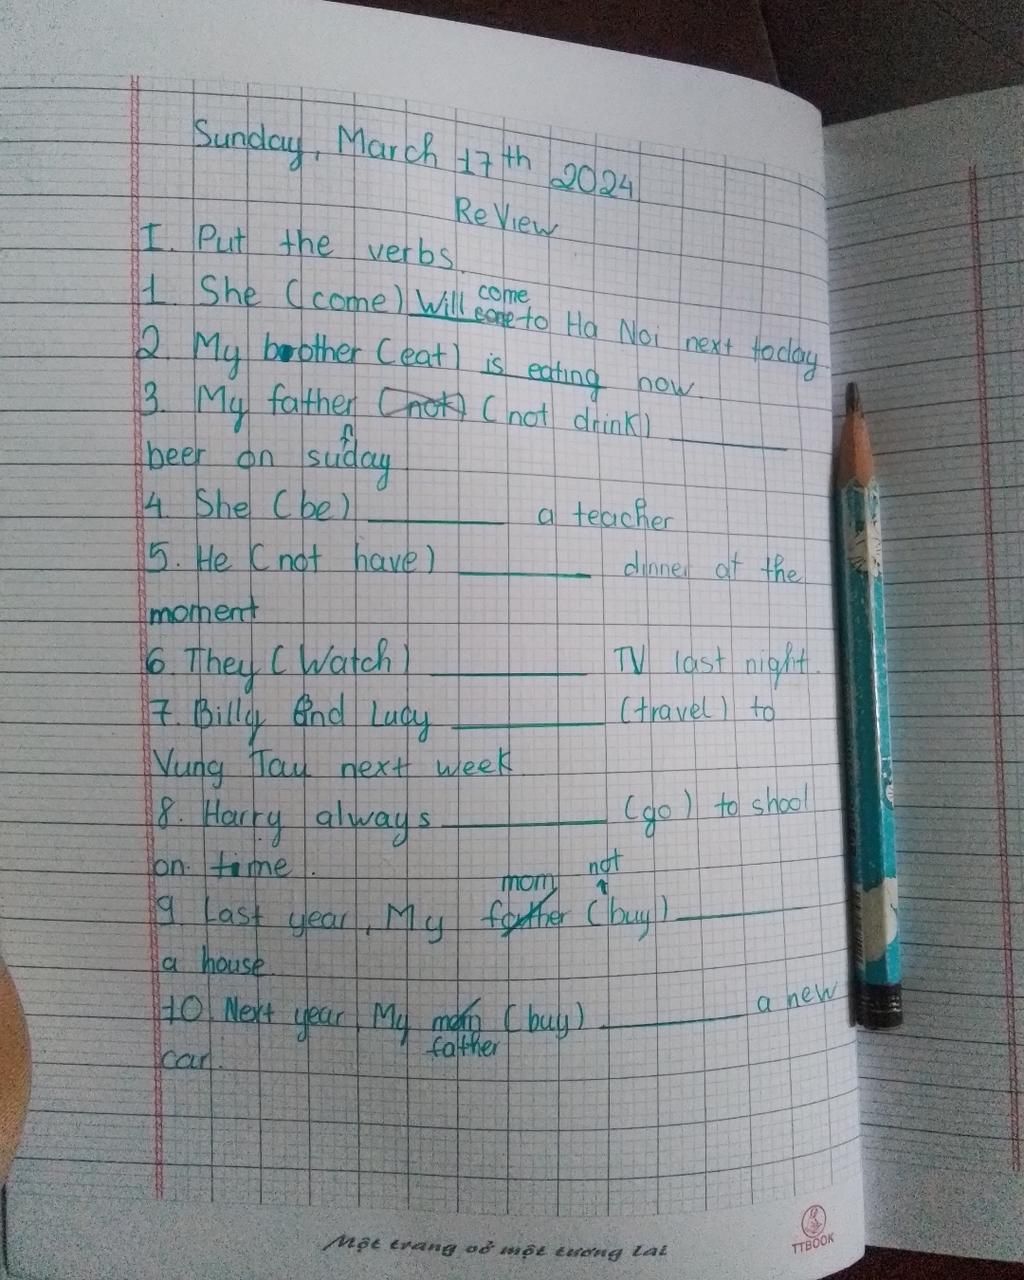 Sunday, March 17th 2024
ReView
I. Put the verbs.
come
1. She (come) Will come to Ha Noi next today.
2. My brother (eat) is eating now.
3. My father (not) (not drink) ______
beer on suday
4. She (be) ______ a teacher
5. He (not have) ______ dinner at the
moment
6. They (Watch) ______ TV last night.
7. Billy and Lucy ______ (travel) to
Vung Tau next week
8. Harry always ______ (go) to shool
on time.
mom not
9. Last year, My father (buy) ______
a house.
10. Next year, My mom (buy) ______ a new
father
car.
Một trang vở một tương lai
TTBOOK